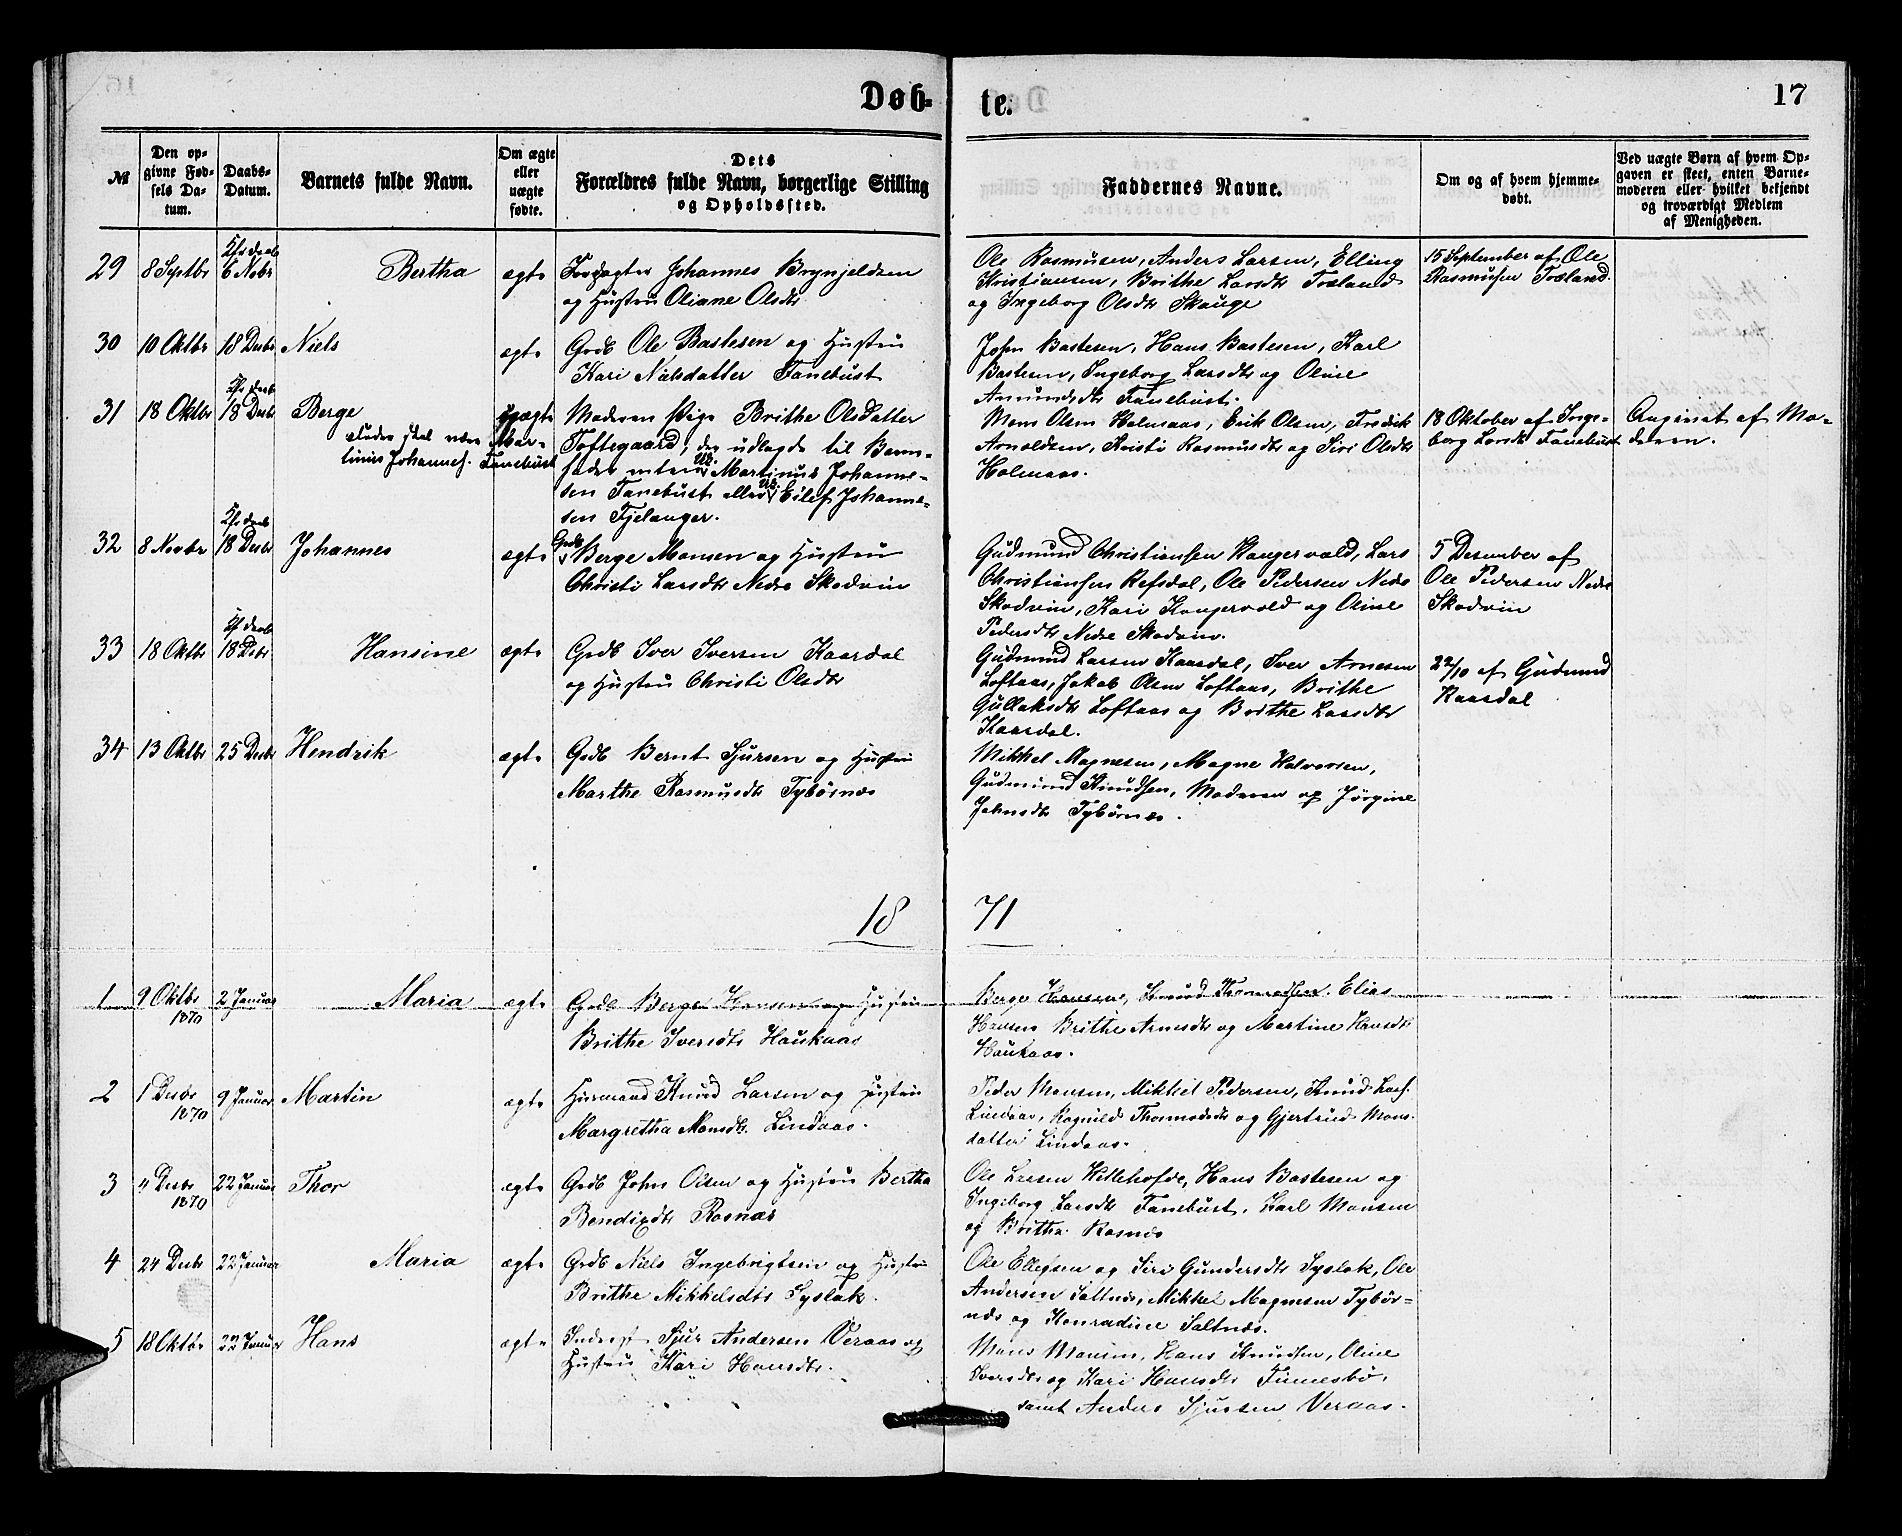 Døb-
te.
17
№
Den op-
givne Fød-
sels Da-
tum.
Daabs-
Datum.
Barnets fulde Navn.
Om ægte
eller
uægte
fødte.
Dets
Forældres fulde Navn, borgerlige Stilling
og Opholdssted.
Faddernes Navne.
Om og af hvem hjemme-
døbt.
Ved uægte Børn af hvem Op-
gaven er skeet, enten Barne-
moderen eller hvilket bekjendt
og troværdigt Medlem
af Menigheden.
29 8 Septbr 6 Nobr Bertha ægte Johannes Brynjeldsen
og Hustru Oliane Olsdtr
Ole Rasmusen, Anders Larsen, Elling
Kristiansen, Brithe Larsdtr Træland
og Ingeborg Olsdtr Skauge
15 September af Ole
Rasmusen Træland.
30 10 Oktbr 18 Desbr Niels ægte Grdb Ole Bastesen og Hustru
Kari Nielsdatter Tanebust
John Bastesen, Hans Bastesen, Karl
Bastesen, Ingeborg Larsdtr og Oline
Amundsdtr Tanebust.
31 18 Oktbr 18 Desbr Berge uægte Moderen Pige Brithe Olsdatter
Toftegaard, den udlagde til Barne-
fader enten Martinus Johanne-
sen Tanebust eller Eilef Johanne-
sen Fjelanger.
Mons Olsen Holmaas, Erik Olsen, Fredrik
Arnoldsen, Kristi Rasmusdtr og Siri Olsdtr
Holmaas.
18 Oktober af Inge-
borg Larsdtr Tanebust
Angivet af Mo-
deren.
32 8 Novbr 18 Desbr Johannes ægte Grdb Berge Monsen og Hustru
Christi Larsdtr Nedre Skodvin
Gudmund Christiansen Haugervold, Lars
Christiansen Refsdal, Ole Pedersen Nedr
Skodvin, Kari og Oline
Pedersdtr Nedre Skodvin.
5 Desember af
Ole Pedersen Nedre
Skodvin
33 18 Oktbr 18 Desbr Hansine ægte Grdb Iver Iversen Kaardal
og Hustru Christi Olsdtr
Gudmund Larsen Kaardal, Iver Arnesen
Loftaas, Jakob Olsen Loftaas, Brithe
Gullaksdtr Loftaas og Brithe Larsdtr
Kaardal.
22/10 af Gudmund
Kaardal
34 13 Oktbr 25 Desbr Hendrik ægte Grdb Bernt Sjursen og Hustru
Marthe Rasmusdtr Tybørnæs
Mikkel Magnesen, Magne Halvorsen,
Gudmund Knudsen, Moderen og Jørgine
Johnsdtr Tybørnæs.
18 71
1 9 Oktbr 1870 2 Januar Maria ægte Grdb Berge Hansen og Hustru
Brithe Iversdtr Haukaas
Berge Hansen, Knud Konradsen, Elias
Hansen Brithe Arnesdtr og Martine Hansdtr
Haukaas.
2 1 Desbr 1870 9 Januar Martin ægte Huusmand Knud Larsen og Hustru
Margretha Monsdtr. Lindaas.
Peder Monsen, Mikkel Pedersen, Knud Lars.
Lindaas, Ragnild Thormodsdtr og Gjertrud Mons-
datter Lindaas.
3 11 Desbr 1870 22 Januar Thor ægte Grdb John Olsen og Hustru Bertha
Bendixdtr Rosnæs
Ole Larsen Hillehofde, Hans Bastesen og
Ingeborg Larsdtr Tanebust, Karl Monsen
og Brithe Rosnæs
4 24 Desbr 22 Januar Maria ægte Grdb Niels Ingebrigtsen og Hustru
Brithe Mikkelsdtr Syslak.
Ole Ellefsen og Siri Gundersdtr Syslak, Ole
Andersen Saltnæs, Mikkel Magnesen Tybør-
næs og Konradine Saltnæs.
5 18 Oktbr 22 Januar Hans ægte Inderst Sjur Andersen Veraas og
Hustru Kari Hansdtr.
Mons Monsen, Hans Knudsen, Oline
Iversdtr og Kari Hansdtr Finnesbø,
samt Anders Sjursen Veraas.